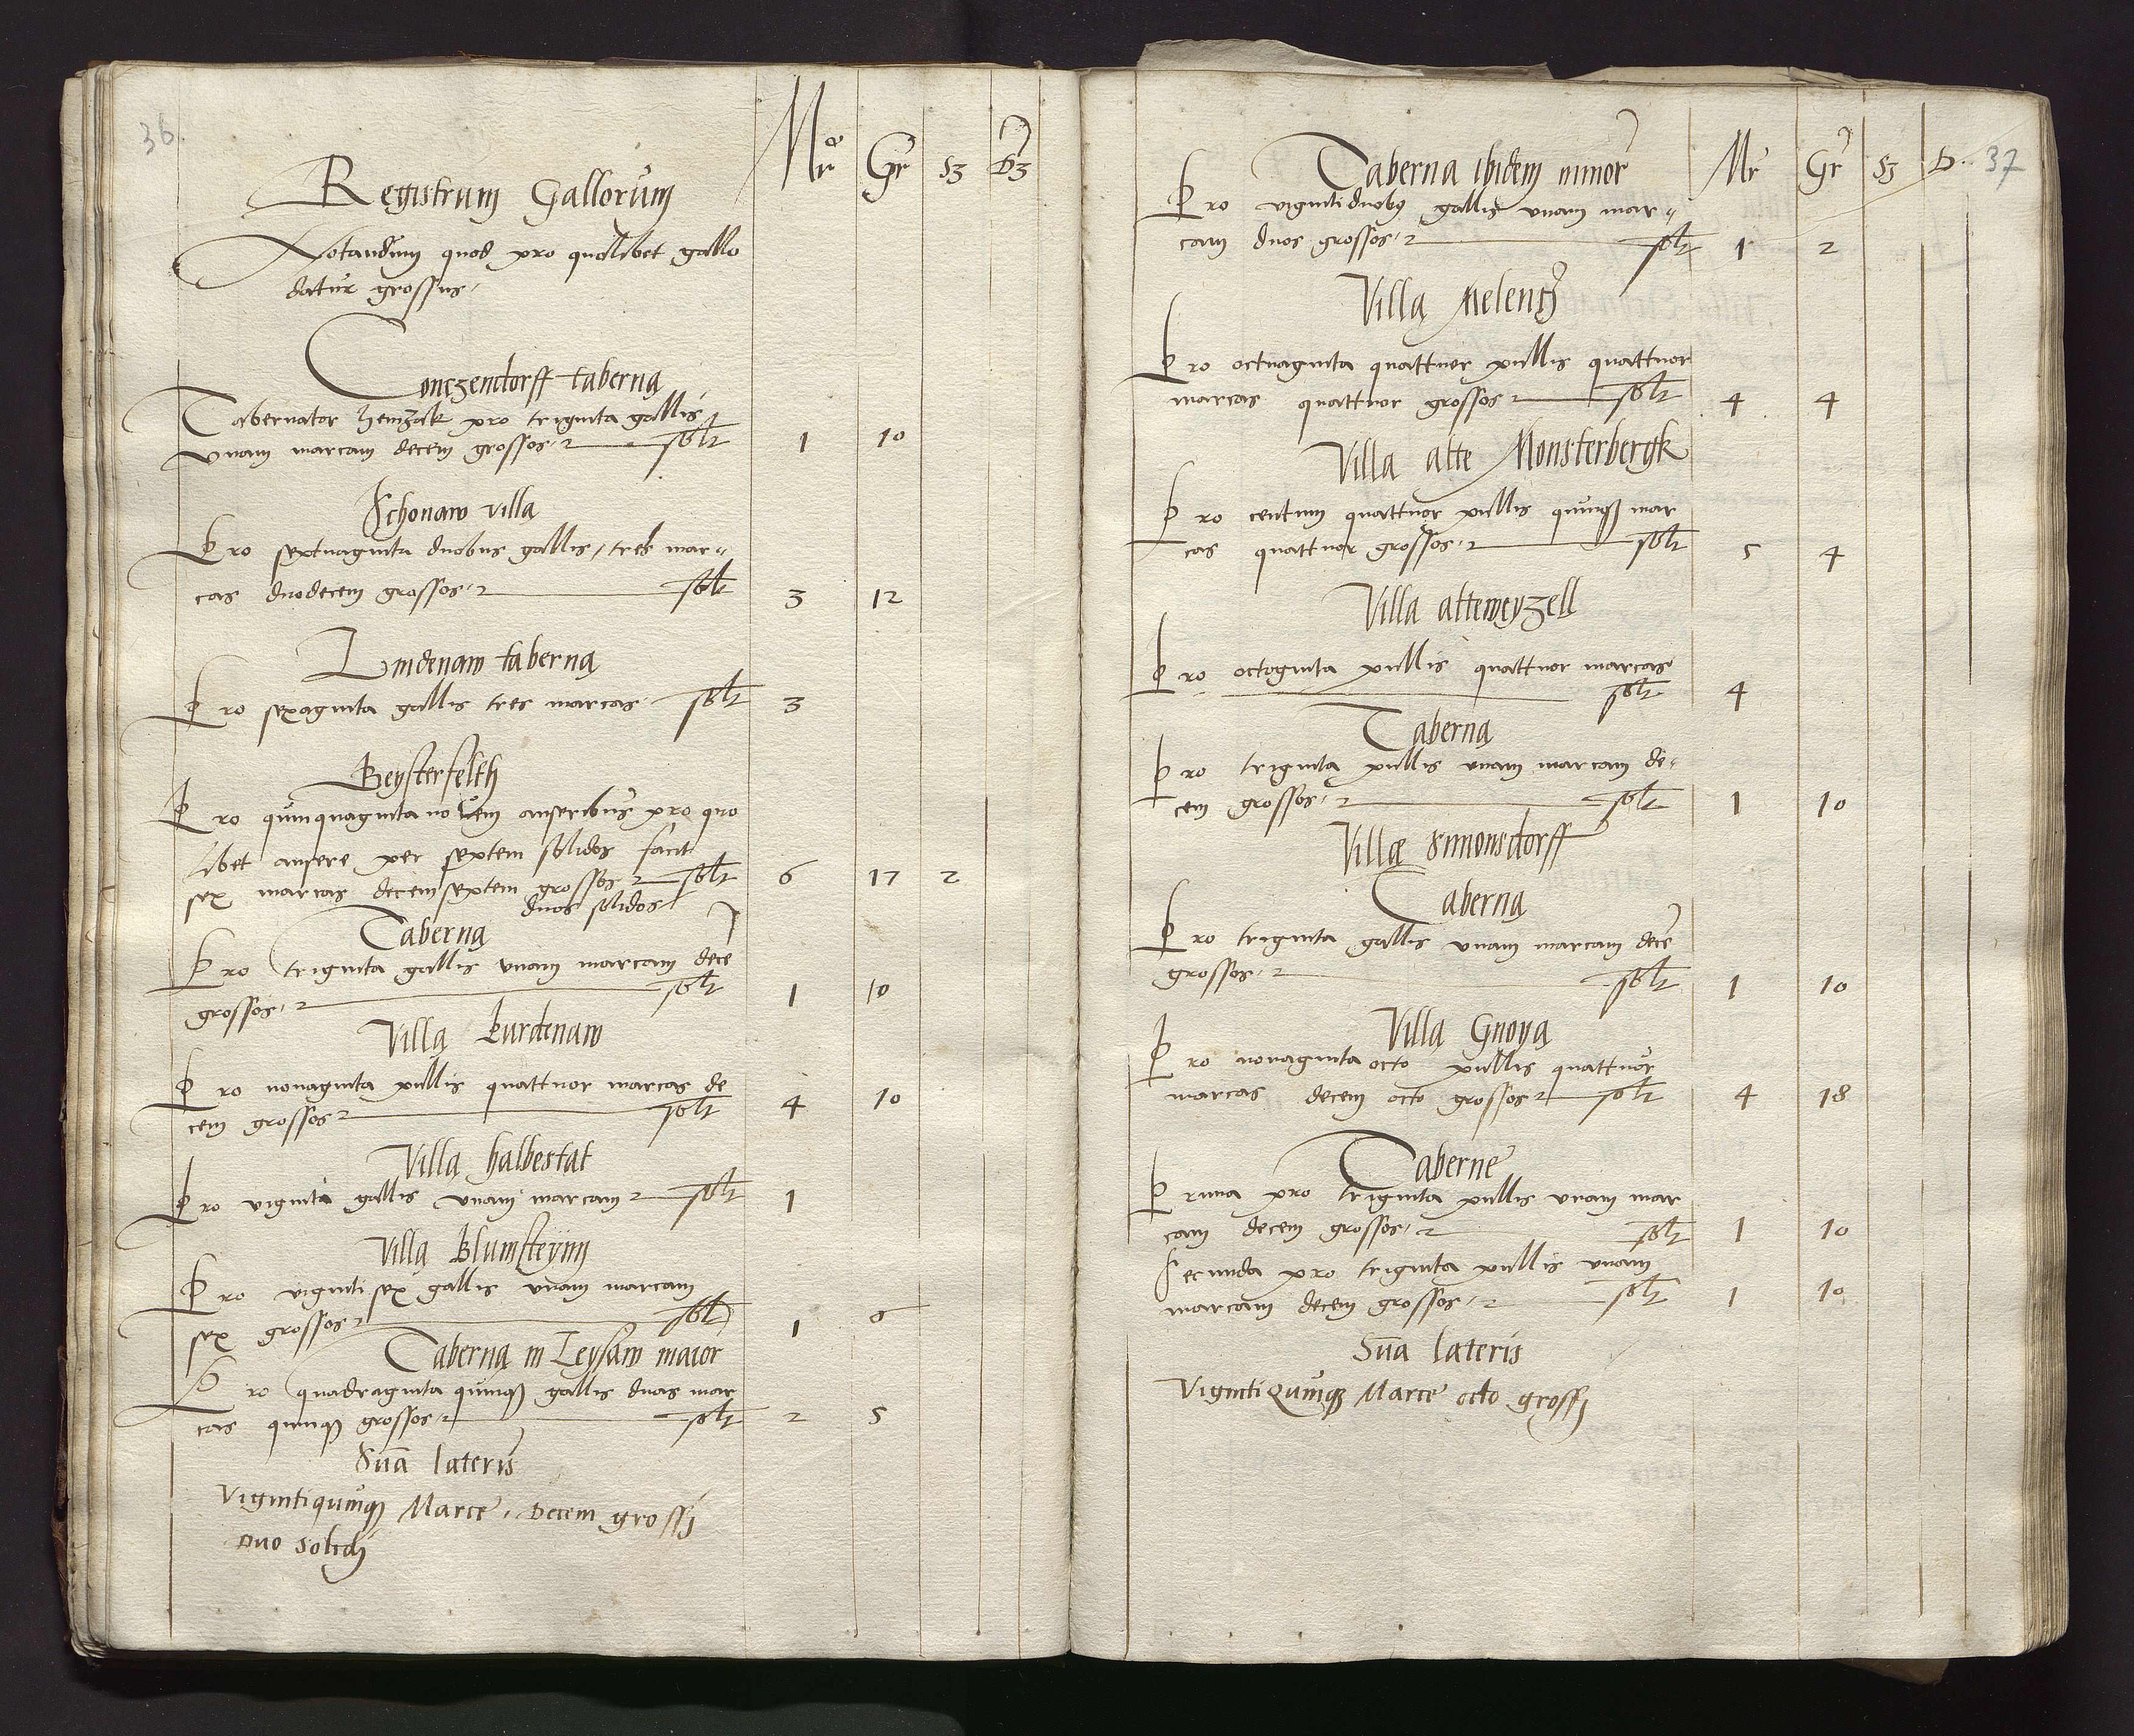 36.
Mr Gr sz dz
Registrum Gallorum
Notandum quod pro quolibet gallo
datur grossus,
Conczendorff taberna
Tabernator henzak pro triginta gallis
vnam marcam decem grossos solt 1 10
Schonaw villa
Pro septuaginta duobus gallis, tres mar„
cas duodecem grossos solt 3 12
Lindenaw taberna
Pro sexaginta gallis tres marcas solt 3
Beysterfelth
Pro quinquaginta novem anseribus pro quo
libet ansere per septem solidos facit
sex marcas decemseptem grossos solt 6 17 2
duos solidos
Taberna
Pro triginta gallis vnam marcam dece
grossos solt 1 10
Villa kurdenaw
Pro nonaginta pullis quattuor marcas de
cem grossos solt 4 10
Villa halbestat
Pro viginta gallis vnam marcam solt 1
Villa Blumsteynn
Pro viginti sex gallis vnam marcam
sex grossos solt 1 6
Taberna in Leysaw maior
Pro quadraginta quinq3 gallis duas mar
cas quinq3 grossos solt 2 5
Sua lateris
Vigintiquinq3 Marce, Decem grossi
Duo solidi
37
Mr Gr sz d.
Taberna ibidem minor
Pro vigintiduobus gallis vnam mar„
cam duos grossos solt 1 2
Villa Melentz
Pro octuaginta quattuor pullis quattuor
marcas quattuor grossos solt 4 4
Villa alte Monsterbergk
Pro centum quattuor pullis quinq3 mar
cas quattuor grossos solt 5 4
Villa alteweyzell
Pro octoginta pullis quattuor marcas
solt 4
Taberna
Pro triginta pullis vnam marcam de-
cem grossos solt 1 10
Villa simonsdorff
Taberna
Pro triginta gallis vnam marcam dece
grossos solt 1 10
Villa Gnoya
Pro nonaginta octo pullis quattuor
marcas decem octo grossos solt 4 18
Taberne
Prima pro triginta pullis vnam mar
cam decem grossos solt 1 10
Secunda pro triginta pullis vnam
marcam decem grossos solt 1 10
Sua lateris
Vigintiquinq3 Marce octo grossi